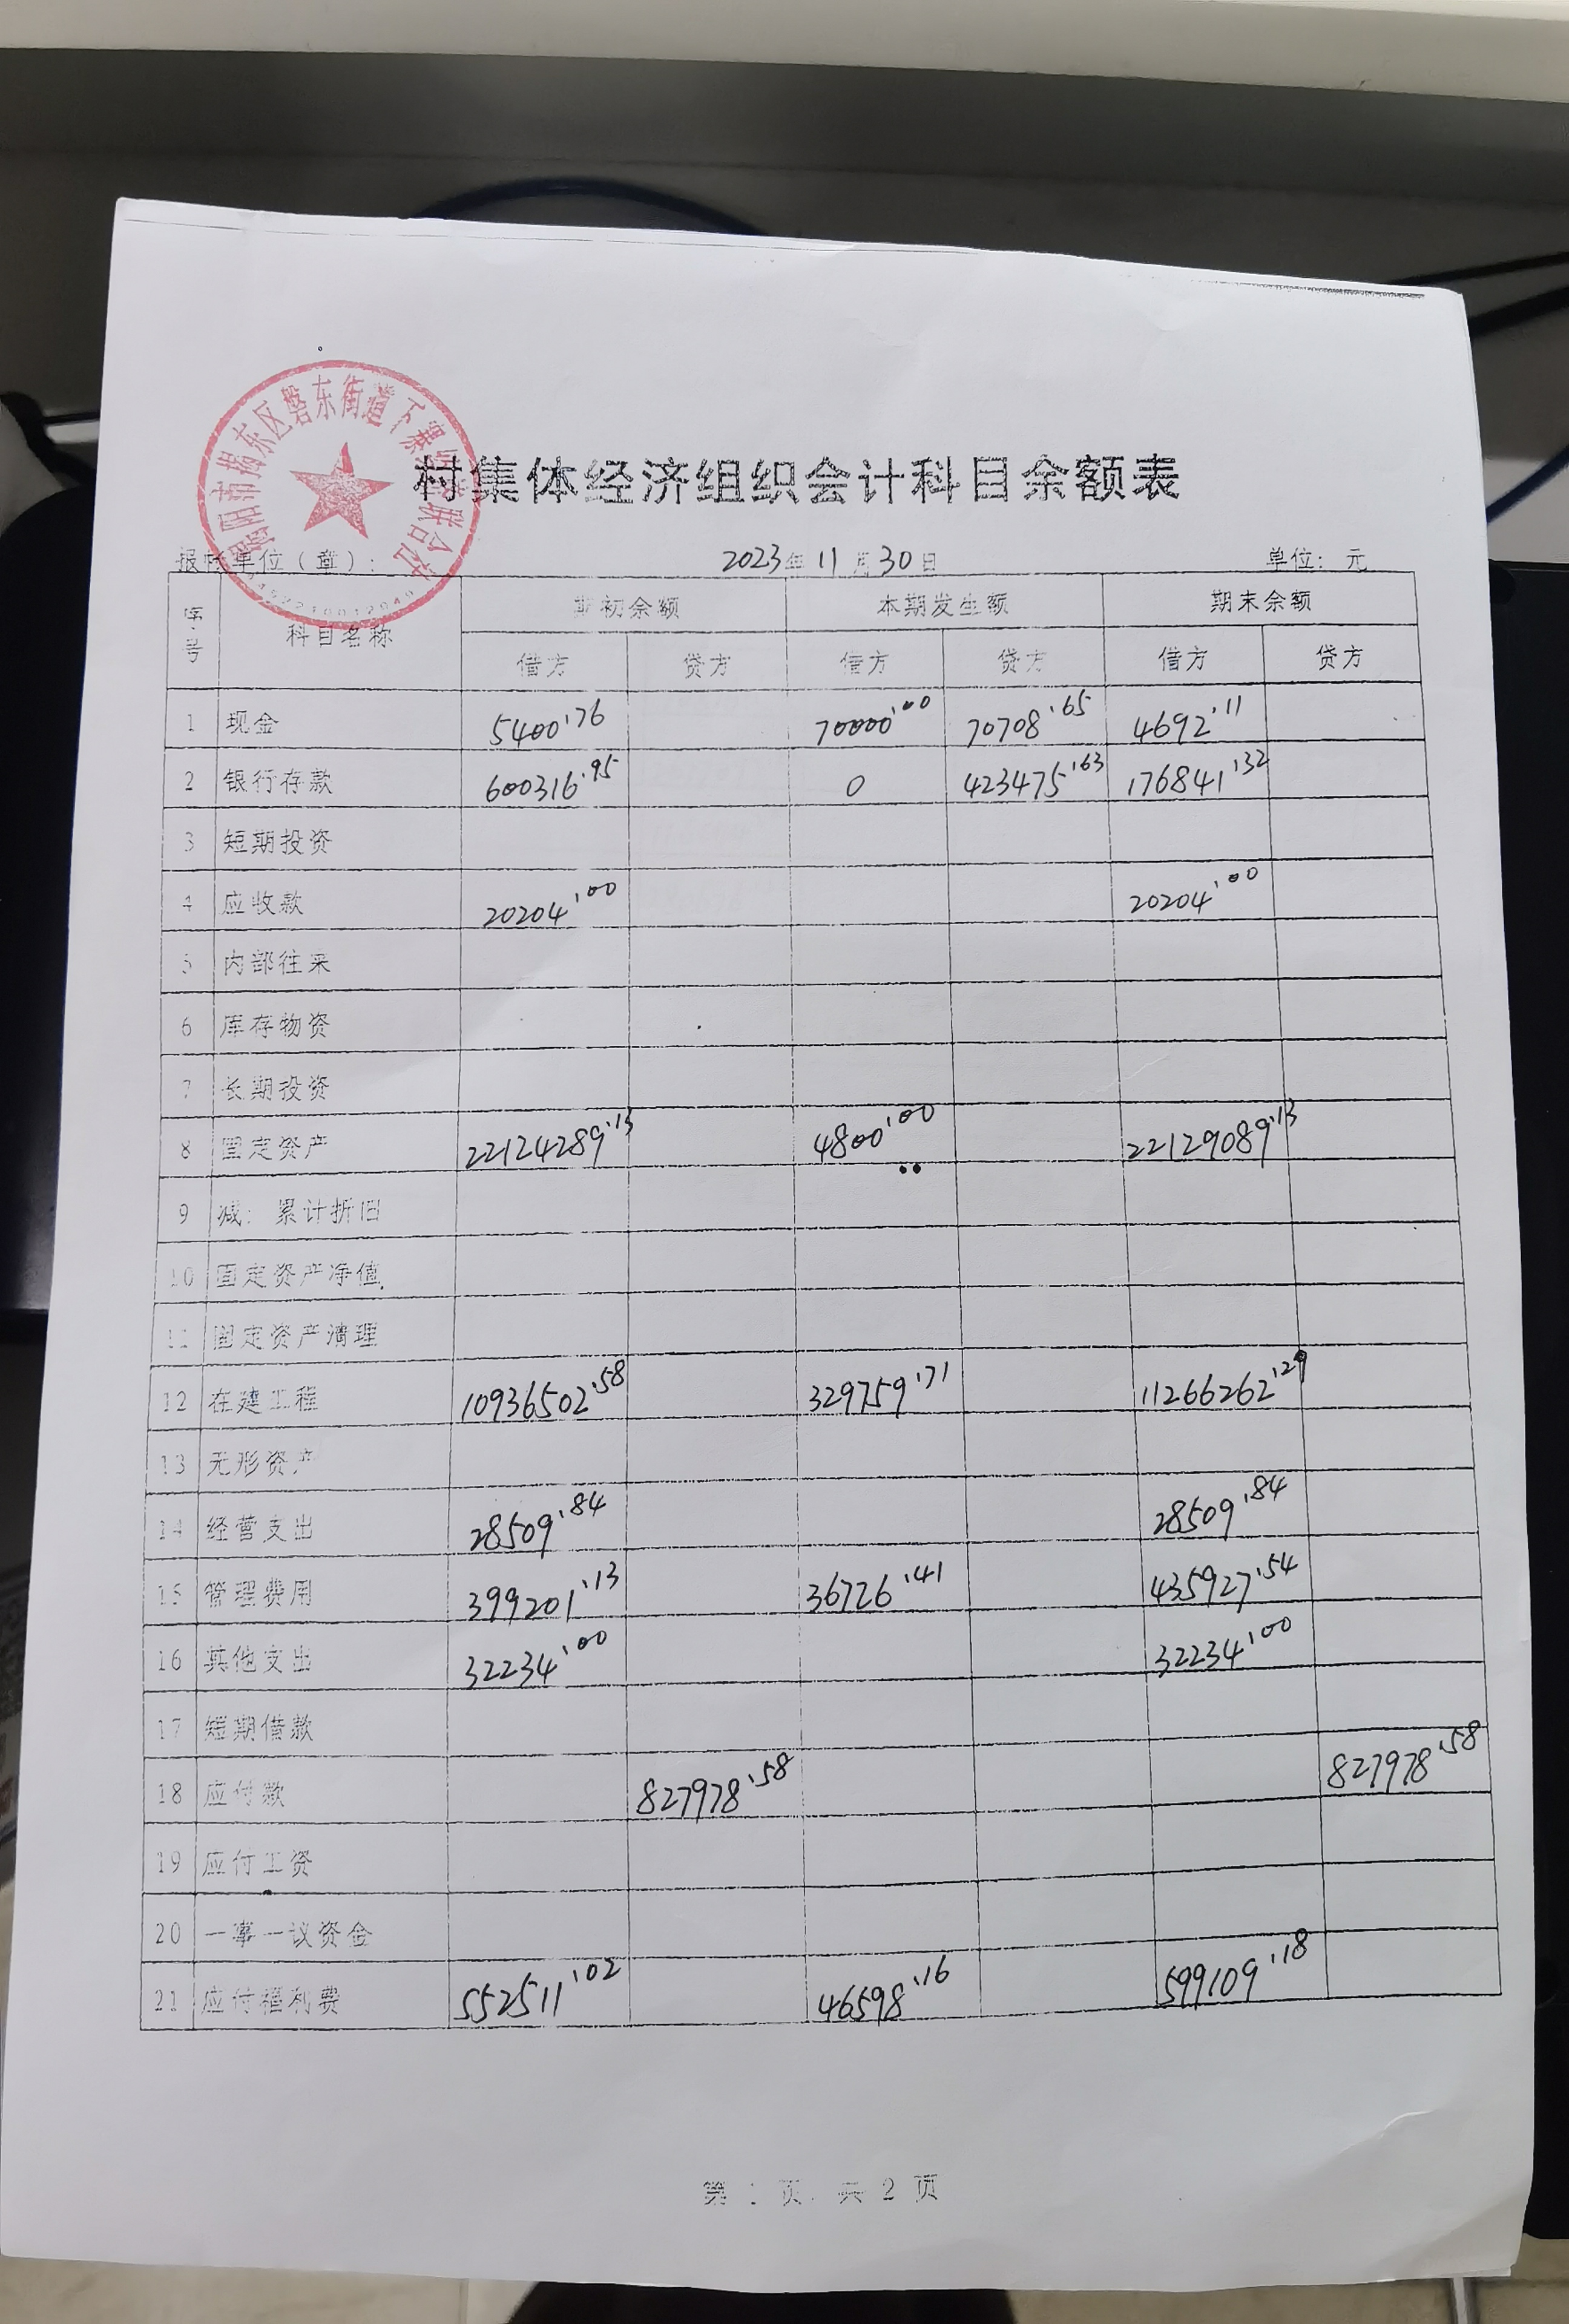 揭阳市揭东区磐东街道下寨经济联合社
村集体经济组织会计科目余额表
报帐单位(章): 2023年11月30日 单位: 元
序号 科目名称 期初余额 本期发生额 期末余额
借方 贷方 借方 贷方 借方 贷方
1 现金 5400.76 70000.00 70708.65 4692.11
2 银行存款 600316.95 0 423475.63 176841.32
3 短期投资
4 应收款 20204.00 20204.00
5 内部往来
6 库存物资
7 长期投资
8 固定资产 22124289.13 4800.00 22129089.13
9 减: 累计折旧
10 固定资产净值
11 固定资产清理
12 在建工程 10936502.58 329759.71 11266262.29
13 无形资产
14 经营支出 28509.84 28509.84
15 管理费用 399201.13 36726.41 435927.54
16 其他支出 32234.00 32234.00
17 短期借款
18 应付款 827978.58 827978.58
19 应付工资
20 一事一议资金
21 应付福利费 552511.02 46598.16 599109.18
第 1 页, 共 2 页